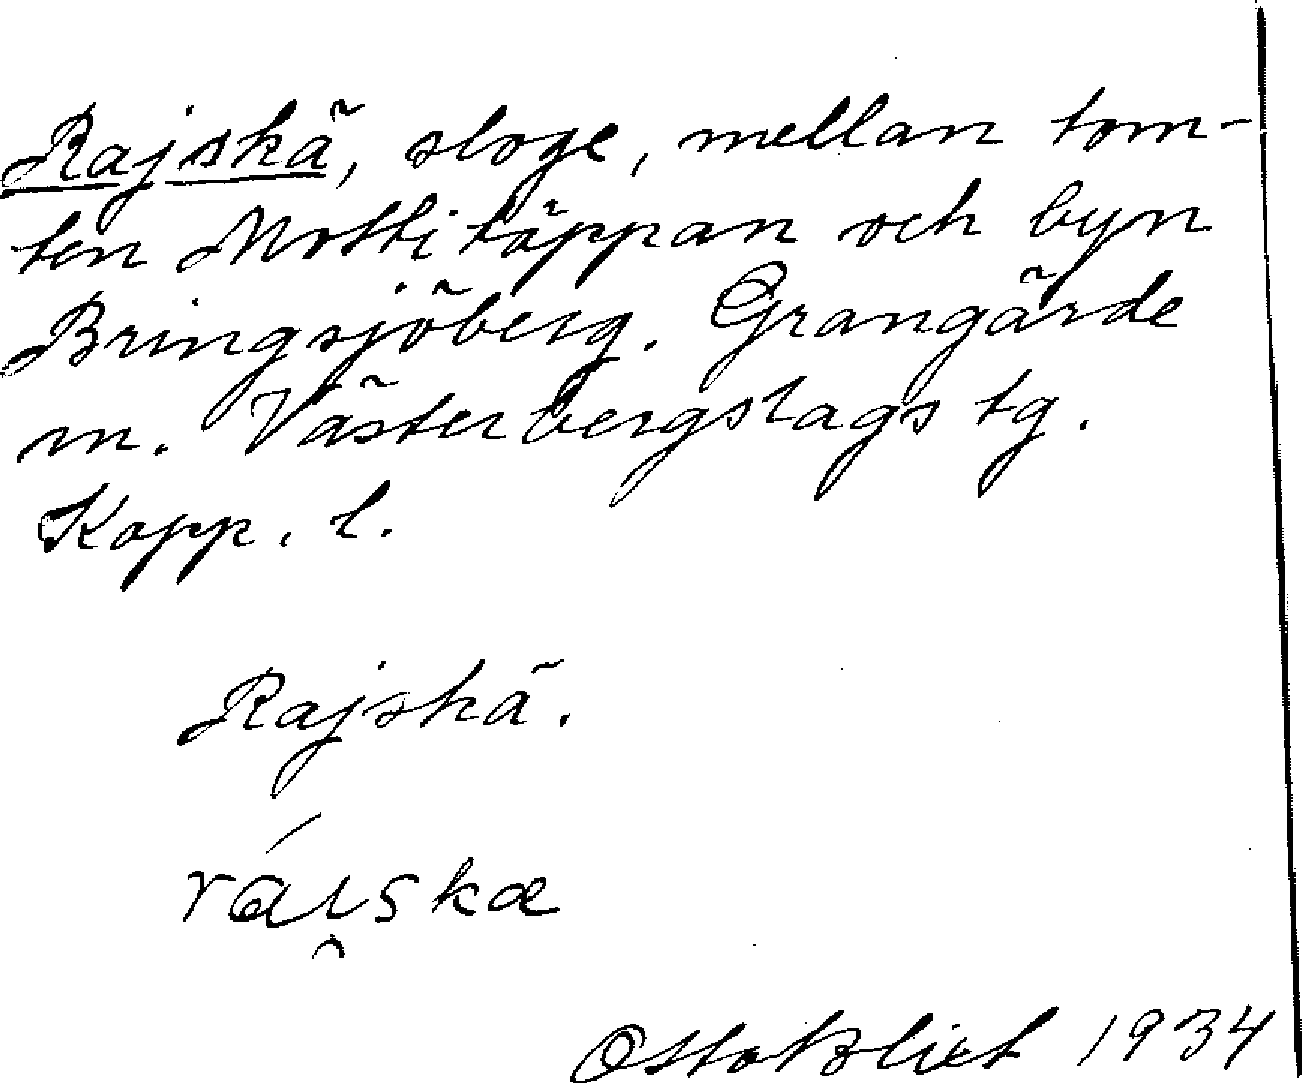 Rajskä, sloge, mellan tom-
ten Mottitäppan och byn
Bringsjöberg. Grangärde
m. Västerbergslags tg.
Kopp. l.
Rajskä.
rái̯skæ
Otto Blixt 1934